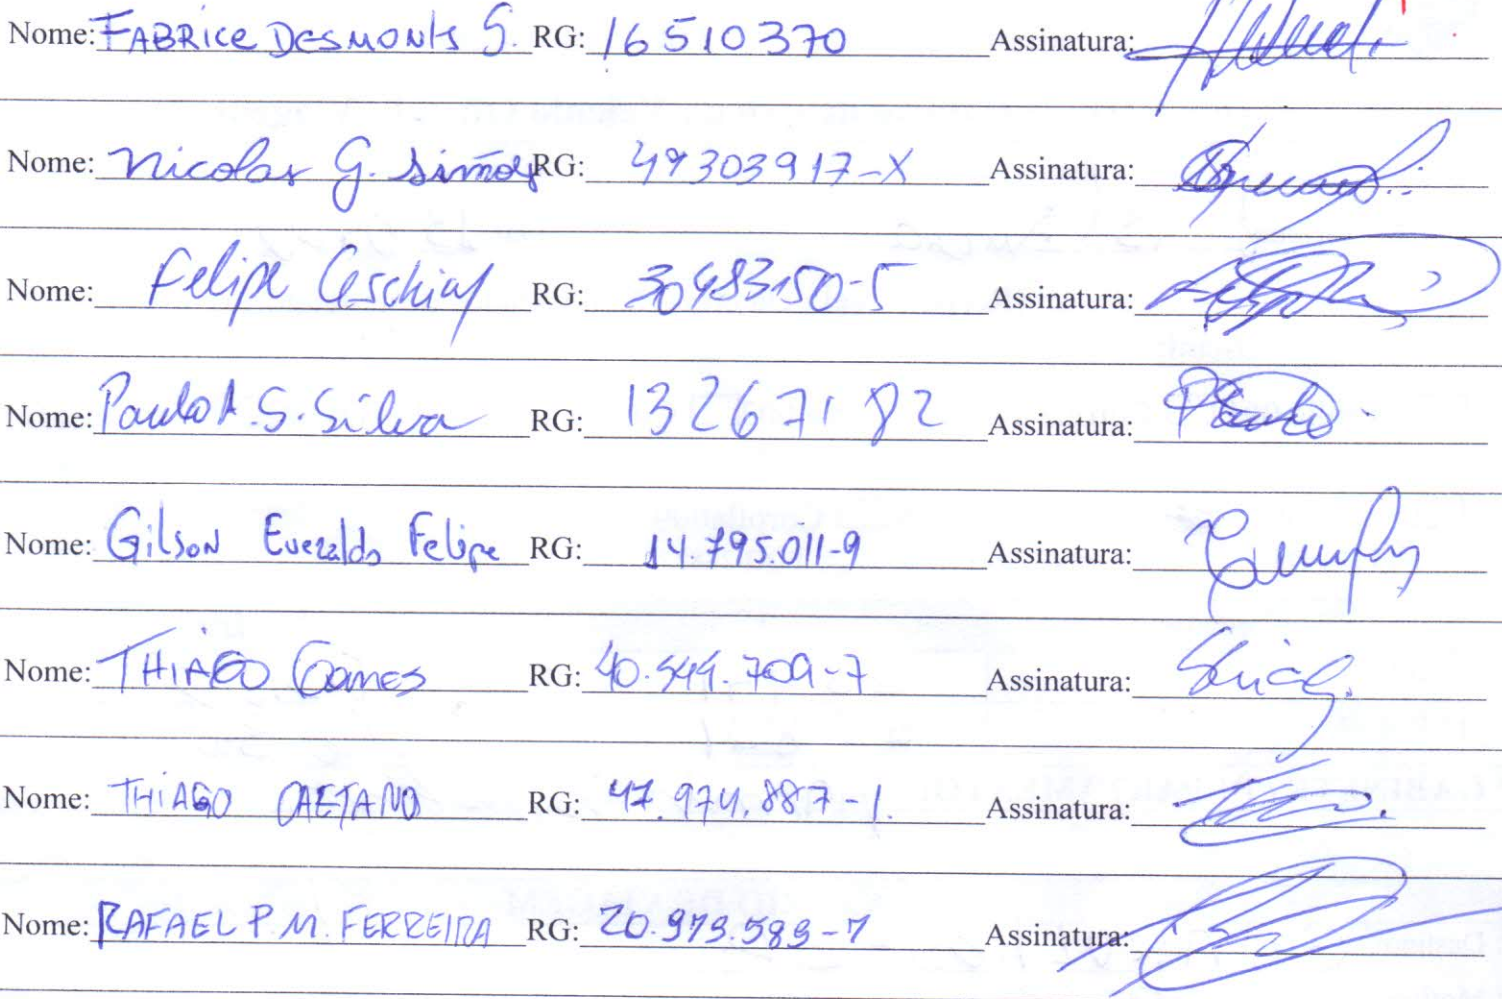 Nome: FABRICE DESMONTS S. RG: 16510370 Assinatura:
Nome: Nicolas G. Simões RG: 49303917-X Assinatura:
Nome: Felipe Ceschiat RG: 30483150-5 Assinatura:
Nome: Paulo A. S. Silva RG: 13267182 Assinatura: Paulo
Nome: Gilson Everaldo Felipe RG: 14.795.011-9 Assinatura:
Nome: THIAGO GOMES RG: 40.544.709-7 Assinatura:
Nome: THIAGO CAETANO RG: 47.974.887-1. Assinatura:
Nome: RAFAEL P.M. FERREIRA RG: 20.979.589-7 Assinatura: